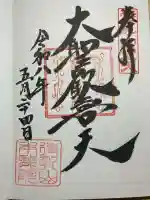 奉拝
大聖歓喜天
令和八年
五月二十四日